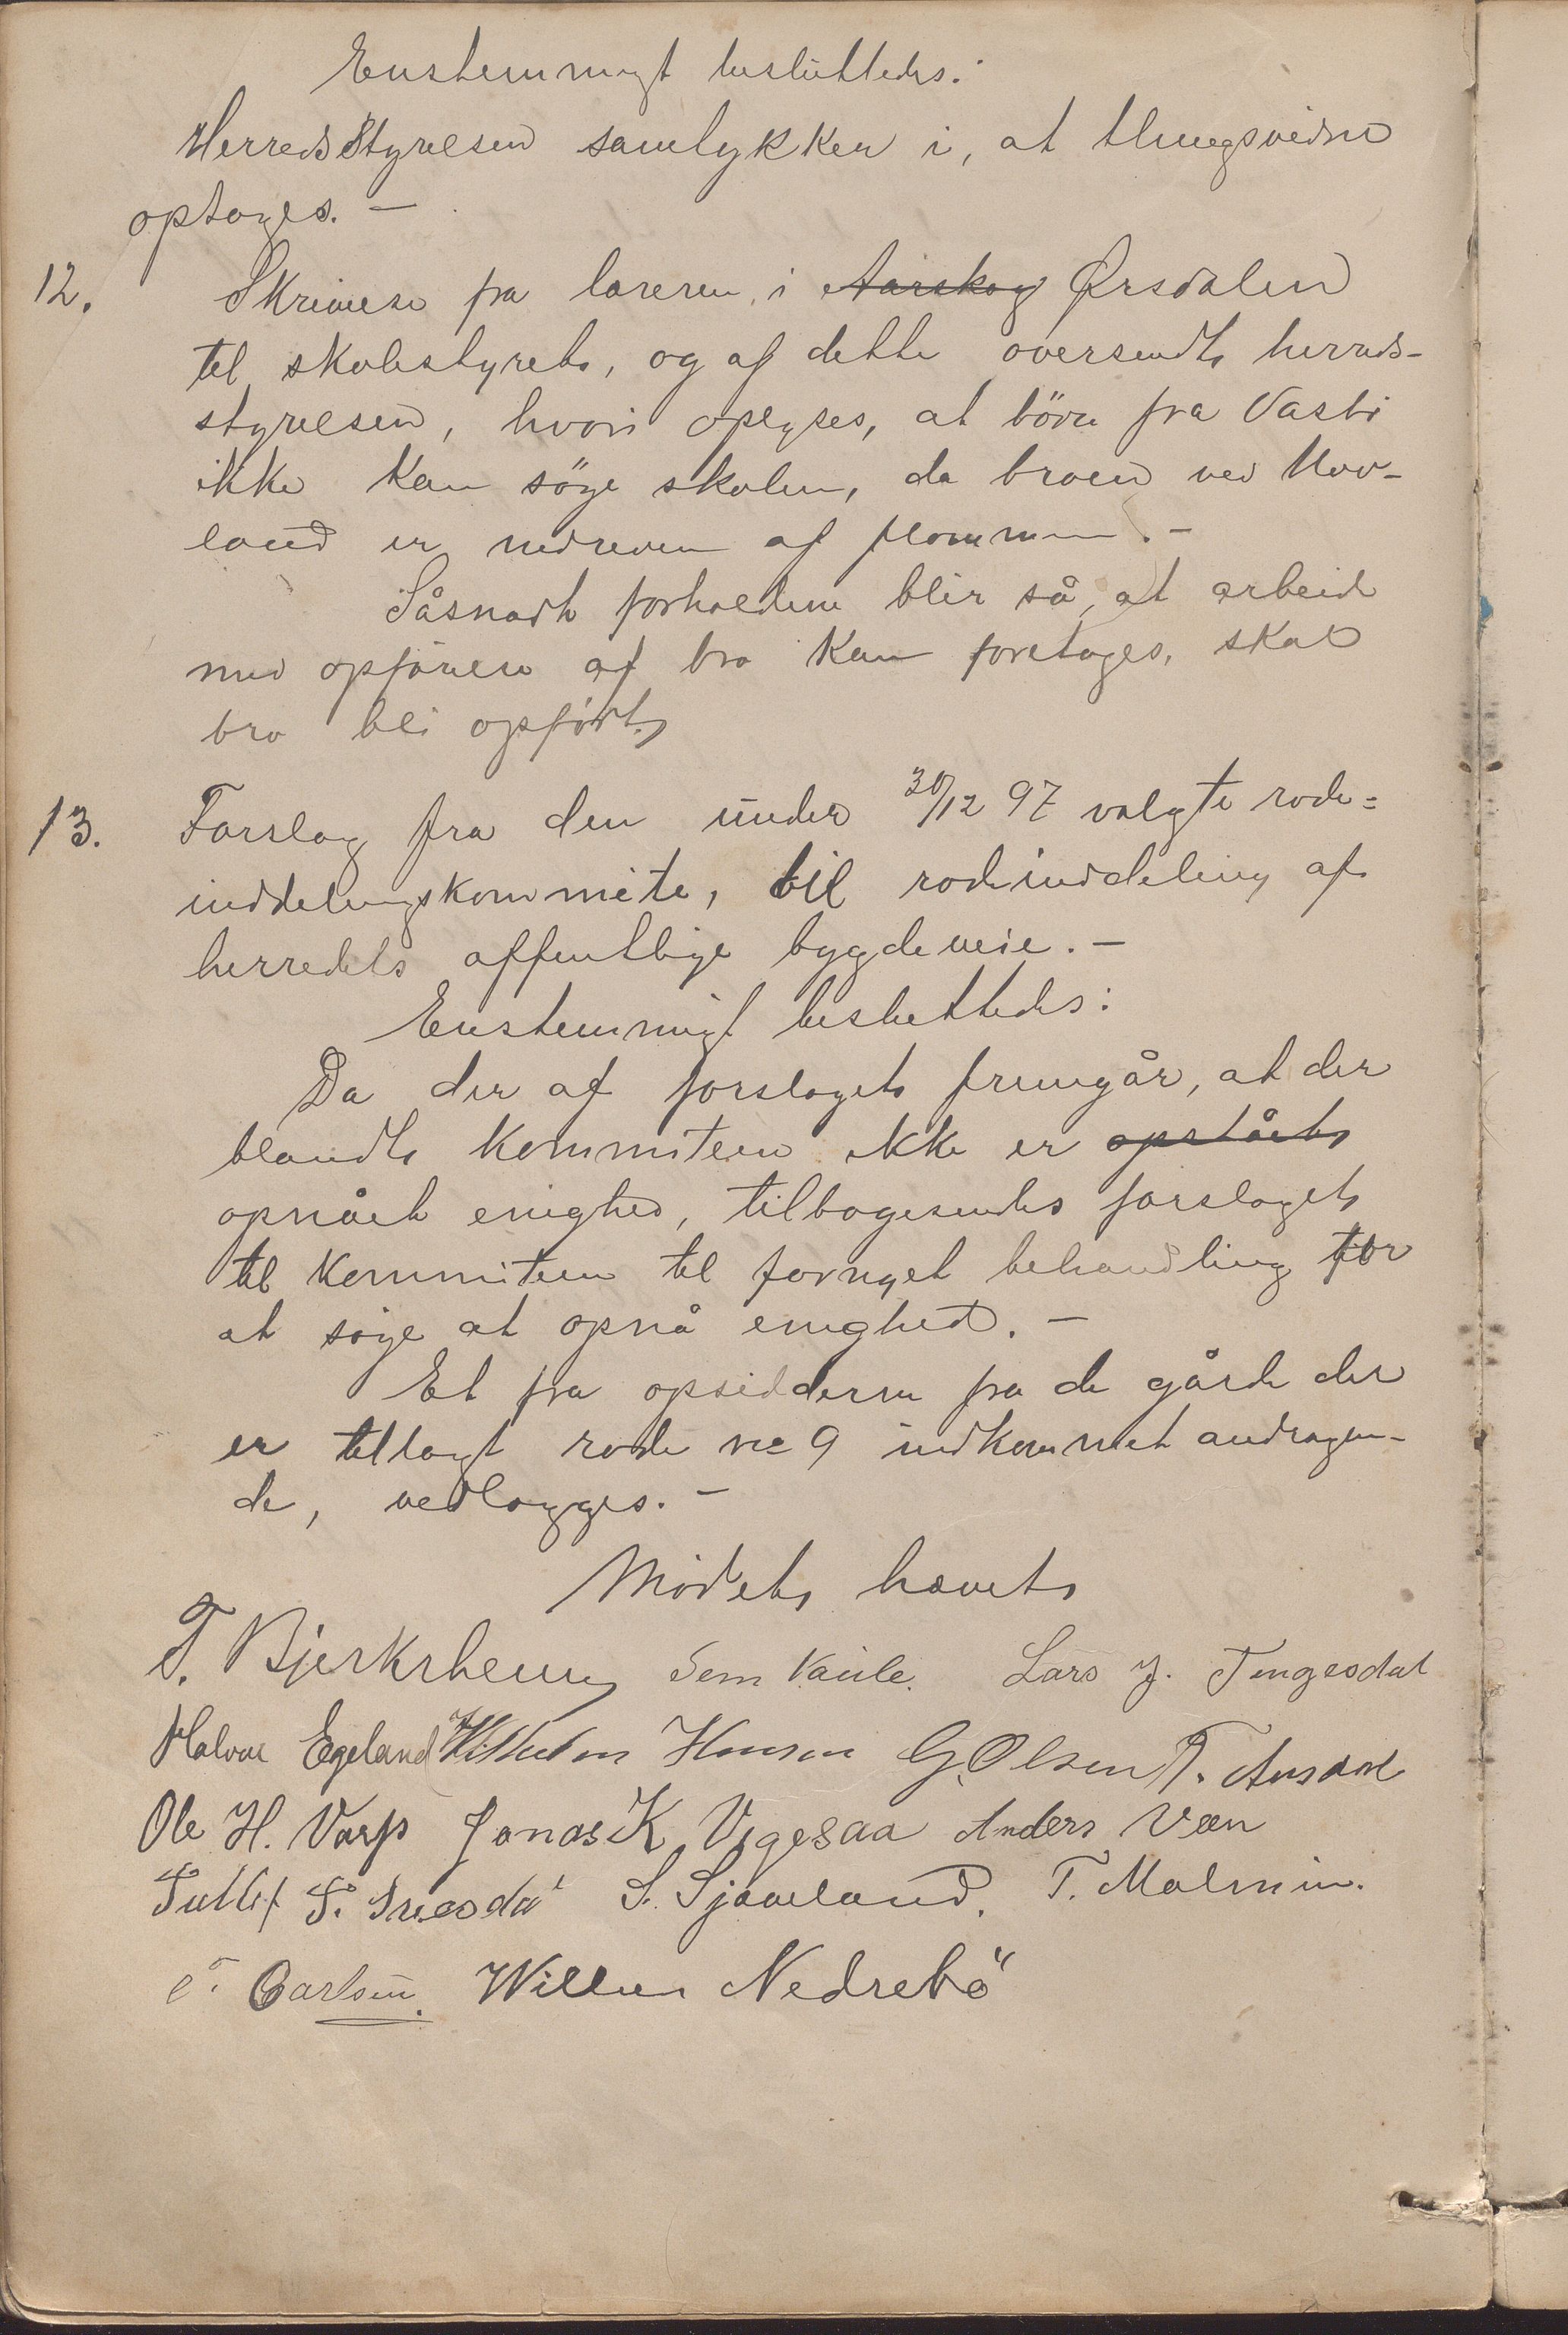 Enstemmigt besluttedes:
Herredsstyrelsen samtykker i, at thingsvidne
optages. —
12. Skrivelse fra læreren i Aarskog Ørsdalen
til skolestyret, og af dette oversendt herreds-
styrelsen, hvori oplyses, at börn fra Vasbö
ikke kan söge skolen, da broen ved Hov-
land er nedreven af flommen. —
Såsnart forholdene blir så, at arbeide
med opförelse af bro kan foretages, skal
bro bli opfört.
13. Forslag fra den under 30/12 97 valgte rode=
inddelingskommite, til rodeinddeling af
herredets offentlige bygdeveie. —
Enstemmigt besluttedes:
Da der af forslaget fremgår, at der
blandt kommiteen ikke er opstået
opnået enighed, tilbagesendes forslaget
til kommiteen til fornyet behandling for
at söge at opnå enighed. —
Et fra opsidderne fra de gårde der
er tillagt rode no 9 indkommet andragen-
de, vedlægges. —
Mödet hævet
T. Bjerkrheim Sem Vaule. Lars J. Tengesdal
Halvor Egeland Vilhelm Hansen G. Olsen T. Ausdal
Ole H. Varp Jonas K Vigesaa Anders Veen
Tollif T. S. Sjöveland. T. Malmin.
Carlsen. Willum Nedrebö